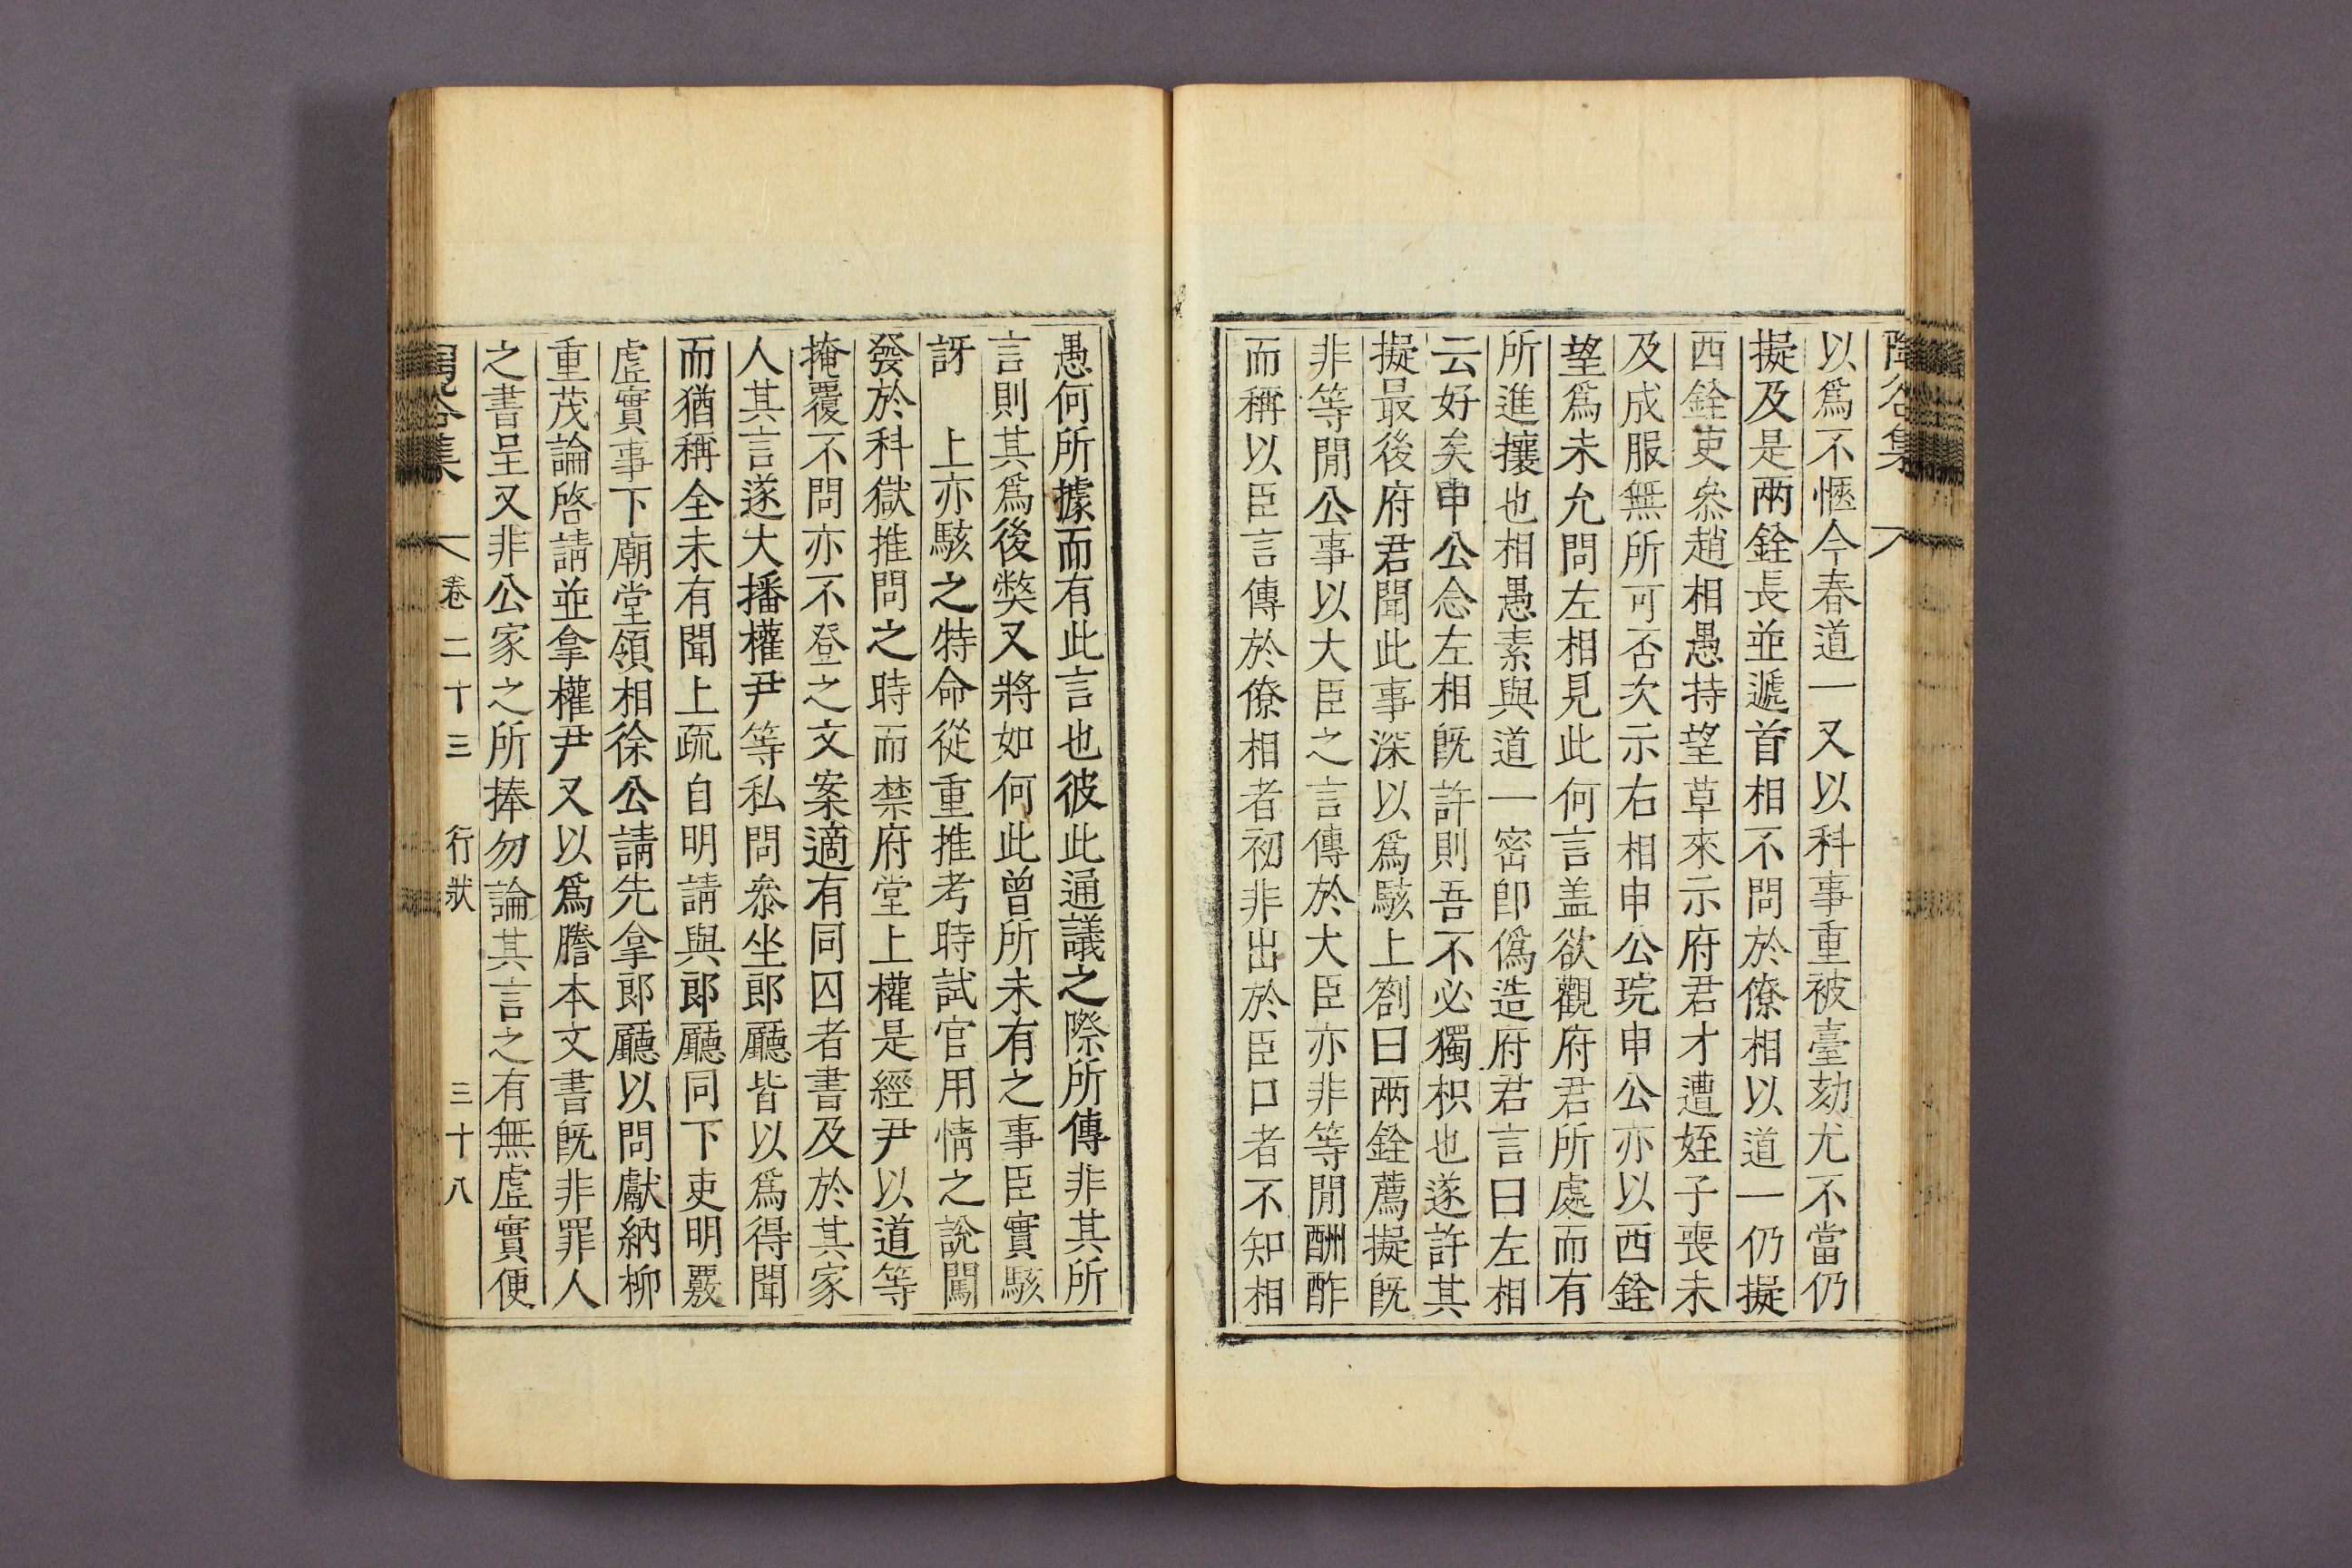 陶谷集
以爲不愜今春道一又以科事重被臺劾尤不當仍
擬及是兩銓長並遞首相不問於僚相以道一仍擬
西銓吏叅趙相愚持望草來示府君才遭姪子喪未
及成服無所可否次示右相申公琓申公亦以西銓
望爲未允問左相見此何言盖欲觀府君所處而有
所進攘也相愚素與道一密卽僞造府君言曰左相
云好矣申公念左相旣許則吾不必獨枳也遂許其
擬最後府君聞此事深以爲駭上劄曰兩銓薦擬旣
非等閒公事以大臣之言傳於大臣亦非等閒酬酢
而稱以臣言傳於僚相者初非出於臣口者不知相
愚何所據而有此言也彼此通議之際所傳非其所
言則其爲後弊又將如何此曾所未有之事臣實駭
訝 上亦駭之特命從重推考時試官用情之說闖
發於科獄推問之時而禁府堂上權是經尹以道等
掩覆不問亦不登之文案適有同囚者書及於其家
人其言遂大播權尹等私問叅坐郎廳皆以爲得聞
而猶稱全未有聞上疏自明請與郎廳同下吏明覈
虛實事下廟堂領相徐公請先拿郎廳以問獻納柳
重茂論啓請並拿權尹又以爲謄本文書旣非罪人
之書呈又非公家之所捧勿論其言之有無虛實便
陶谷集 卷二十三 行狀 三十八